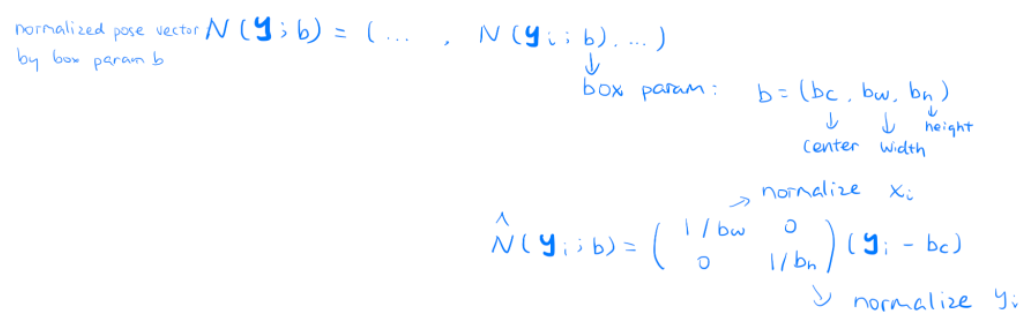 normalized pose vector N(y;b) = (... , N(yi;b), ...)
by box param b
↓
box param: b=(bc, bw, bh)
↓ ↓ ↓
center width height
→ normalize xi
^
N(yi;b) = ( 1/bw 0 ) (yi - bc)
( 0 1/bh )
↘ normalize yi